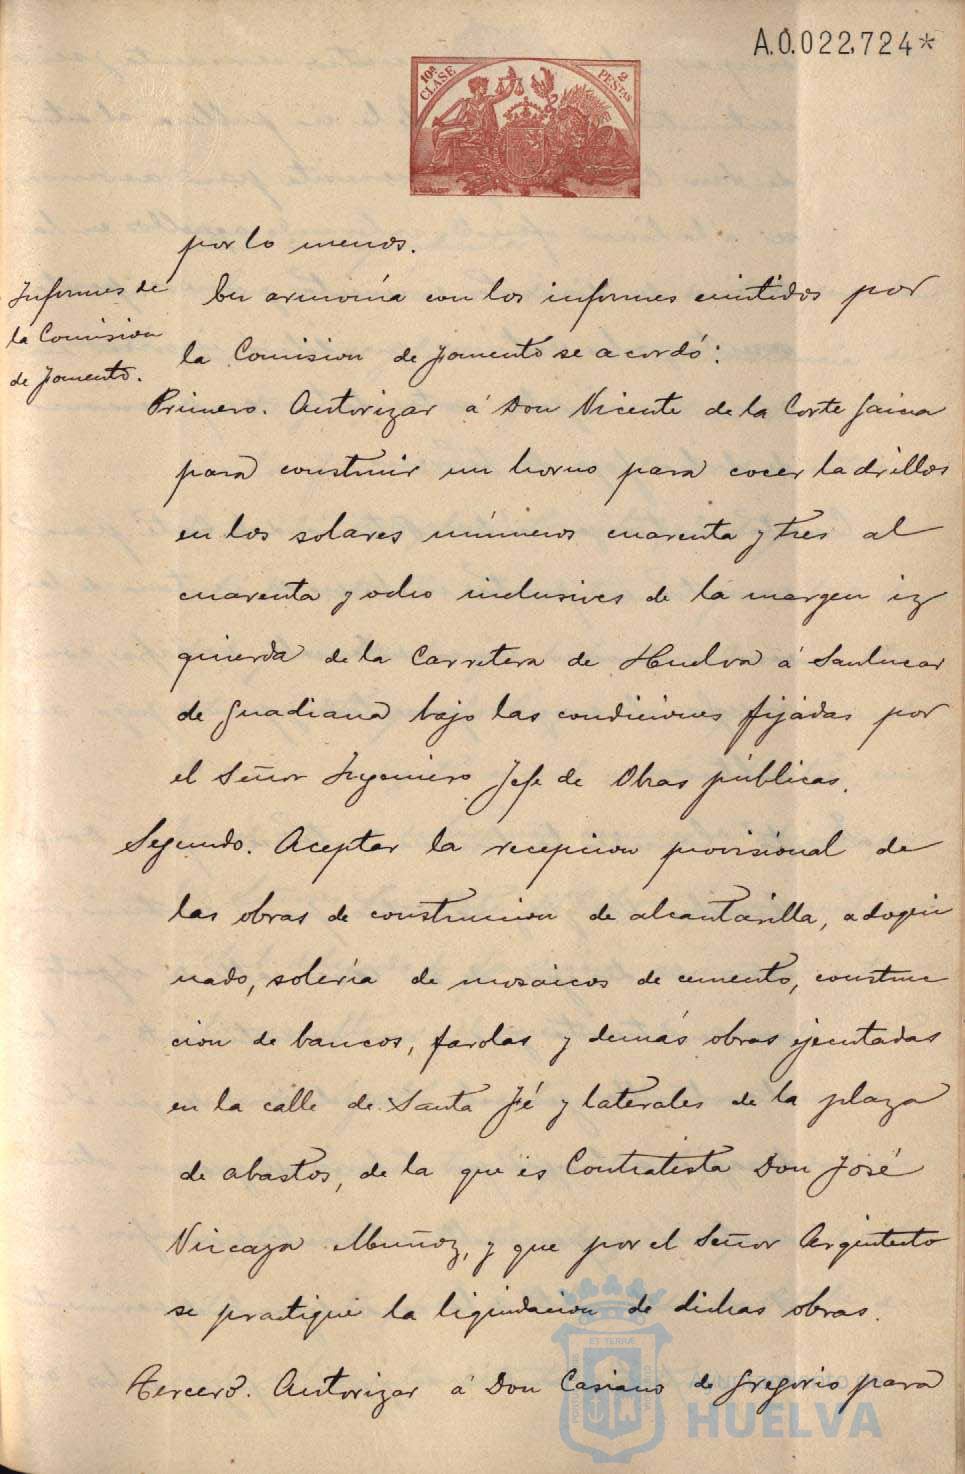 A.0.022.724*
10ª CLASE
2 PESTAS
por lo menos.
Informes de
la Comision
de Fomento.
En armonía con los informes emitidos por
la Comision de Fomento se acordó:
Primero. Autorizar á Don Vicente de la Corte Gaina
para construir un horno para cocer ladrillos
en los solares números cuarenta y tres al
cuarenta y ocho inclusives de la margen iz
quierda de la Carretera de Huelva á Sanlucar
de Guadiana bajo las condiciones fijadas por
el Señor Ingeniero Jefe de Obras públicas.
Segundo. Aceptar la recepcion provisional de
las obras de construccion de alcantarilla, adoqui
nado, solería de mosáicos de cemento, construc
cion de bancos, farolas y demás obras ejecutadas
en la calle de Santa Fé y laterales de la plaza
de abastos, de la que es Contratista Don José
Vizcaya Muñoz, y que por el Señor Arquitecto
se practique la liquidacion de dichas obras.
Tercero. Autorizar á Don Casiano de Gregorio para
ET TERRÆ
HUELVA